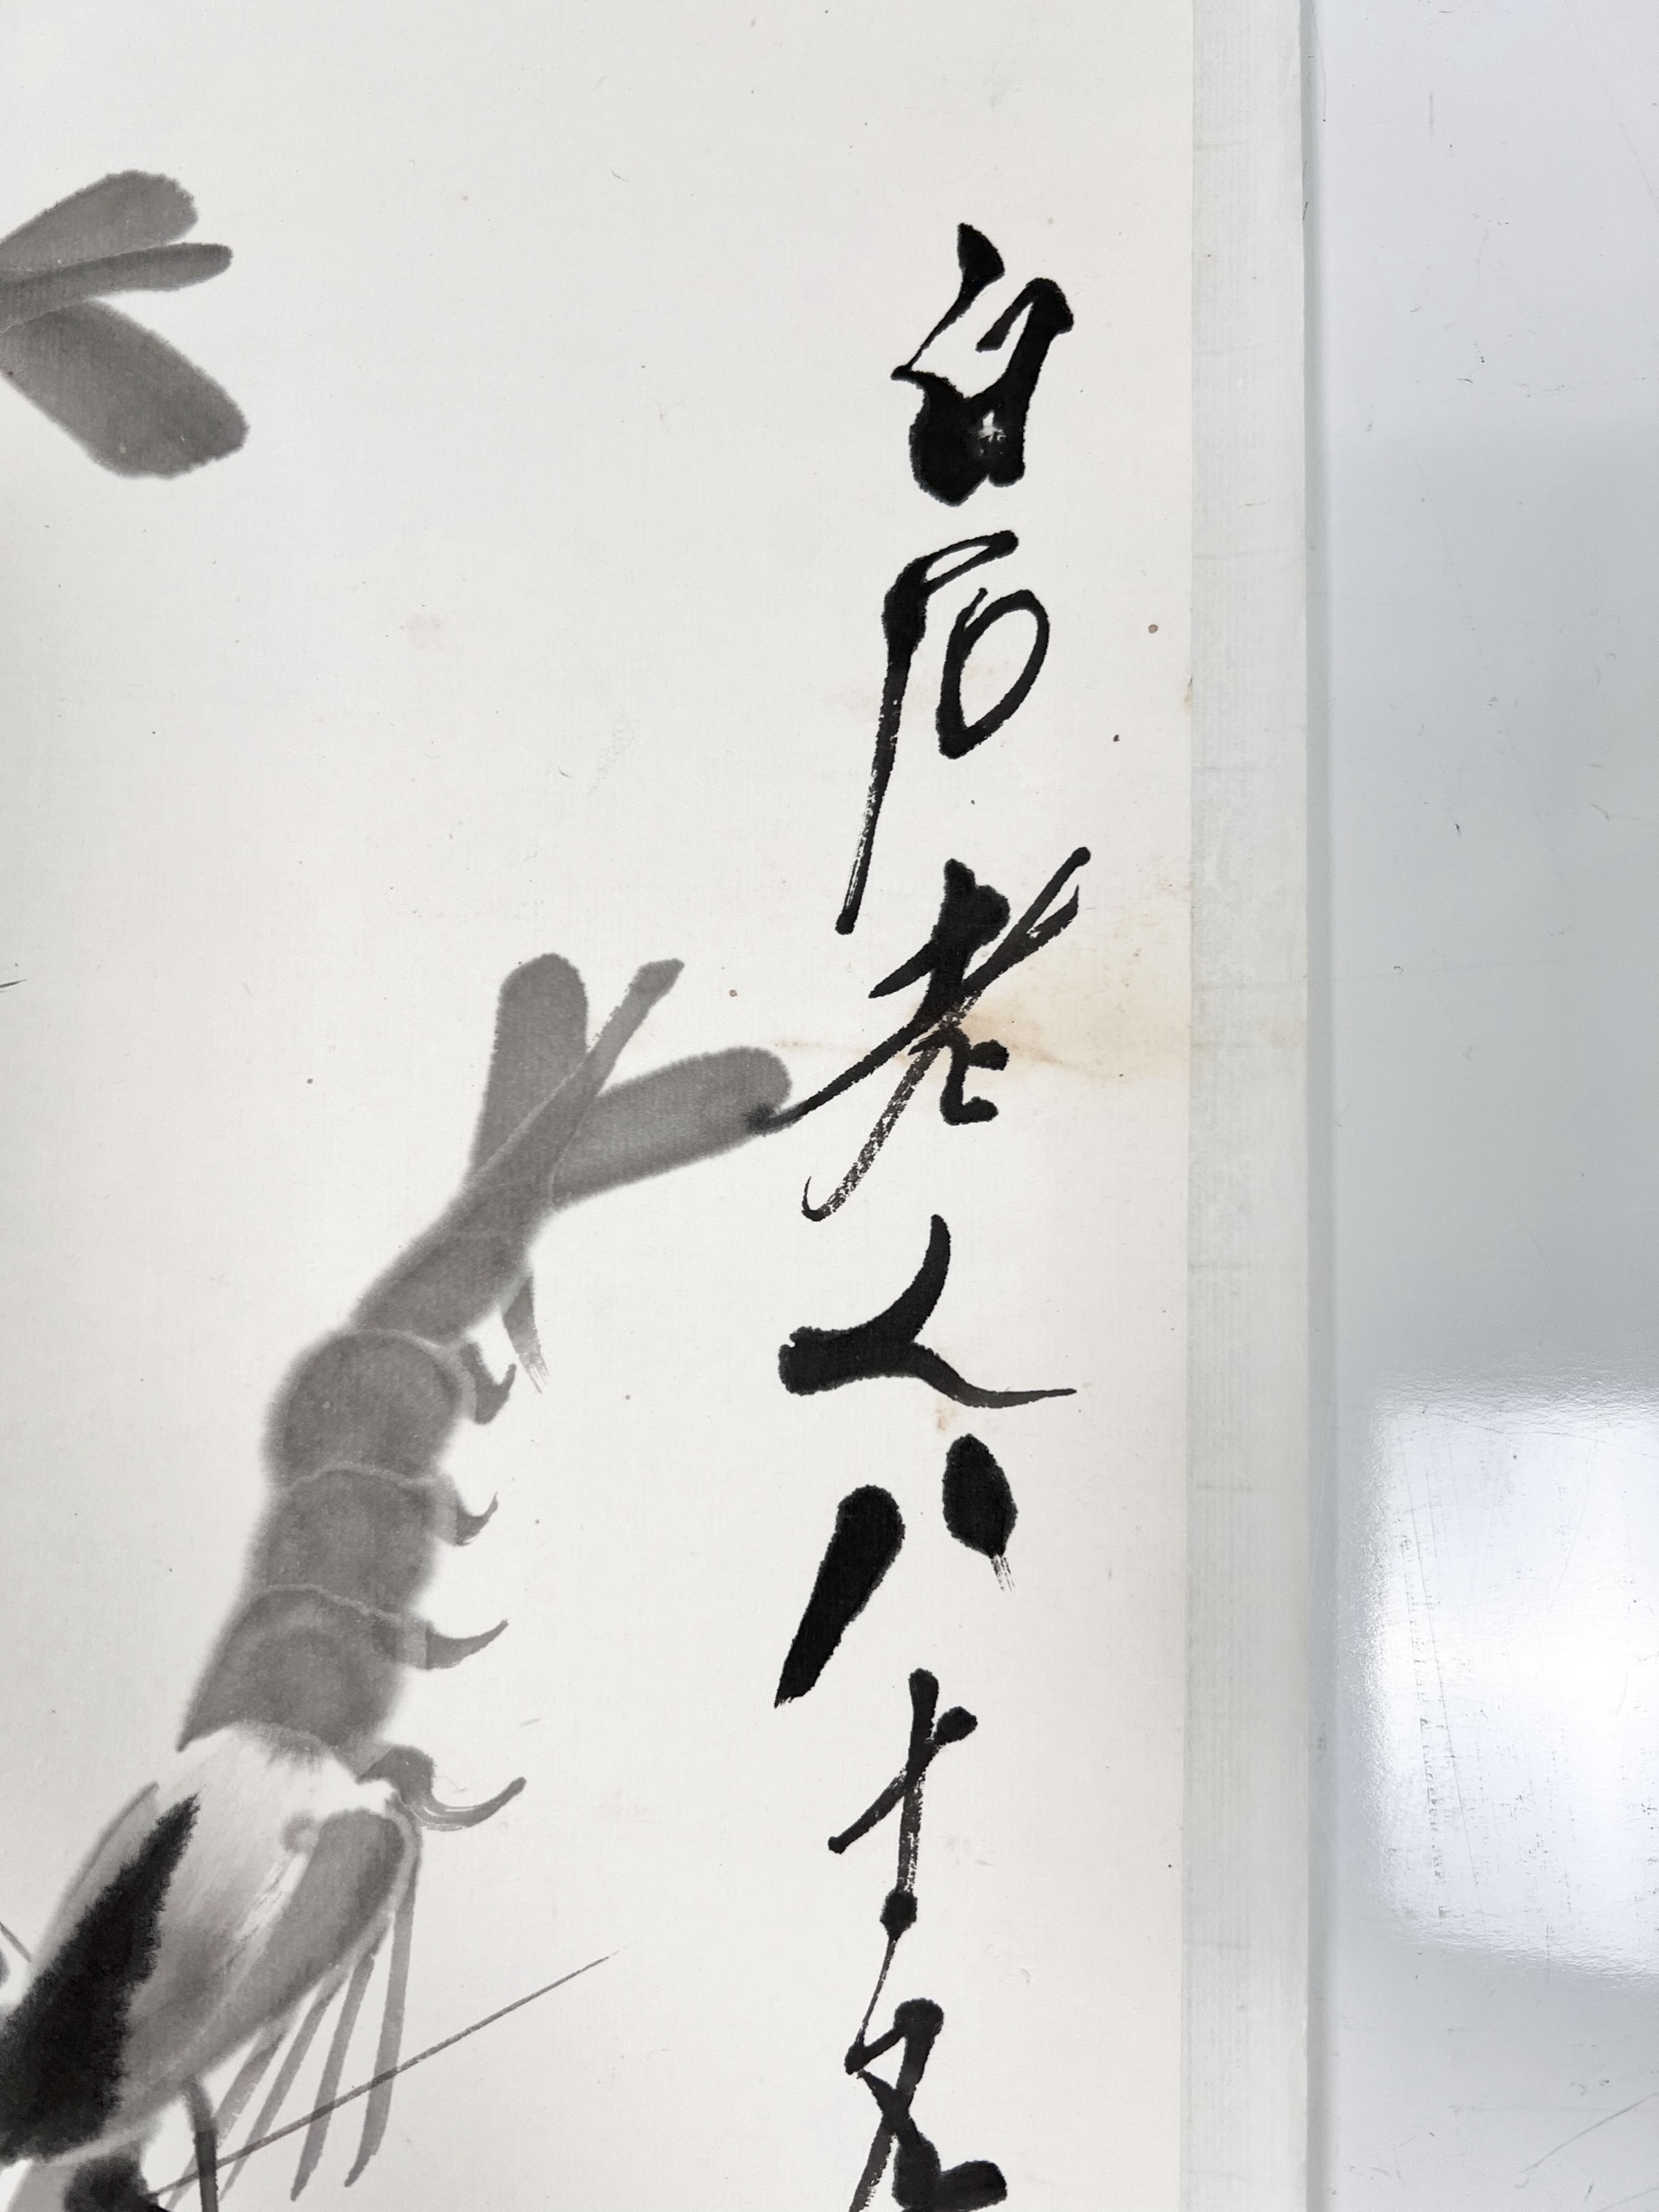 白石老人八十